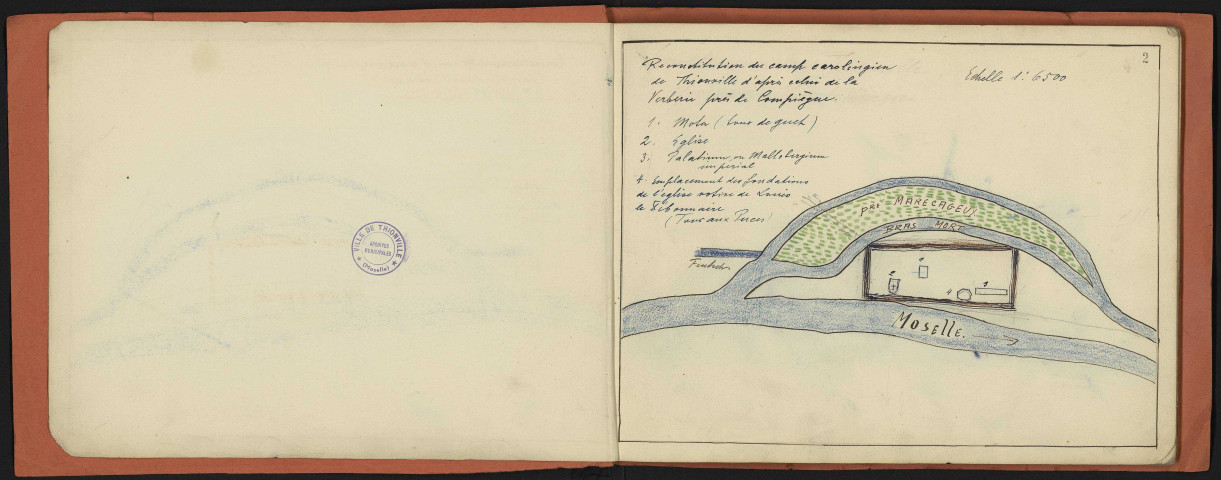 VILLE DE THIONVILLE
ARCHIVES
MUNICIPALES
(Moselle)
2
Reconstitution du camp carolingien
de Thionville d'après celui de la
Verberie près de Compiègne.
Echelle 1: 6500
1. Mota (tour de guet)
2. Eglise
3. Palatium ou
impérial
4. Emplacement des fondations
de l'église votive de Louis
le Débonnaire
(Tour aux Puces)
PRÉ MARECAGEUX
BRAS MORT
1
2
4
MOSELLE.